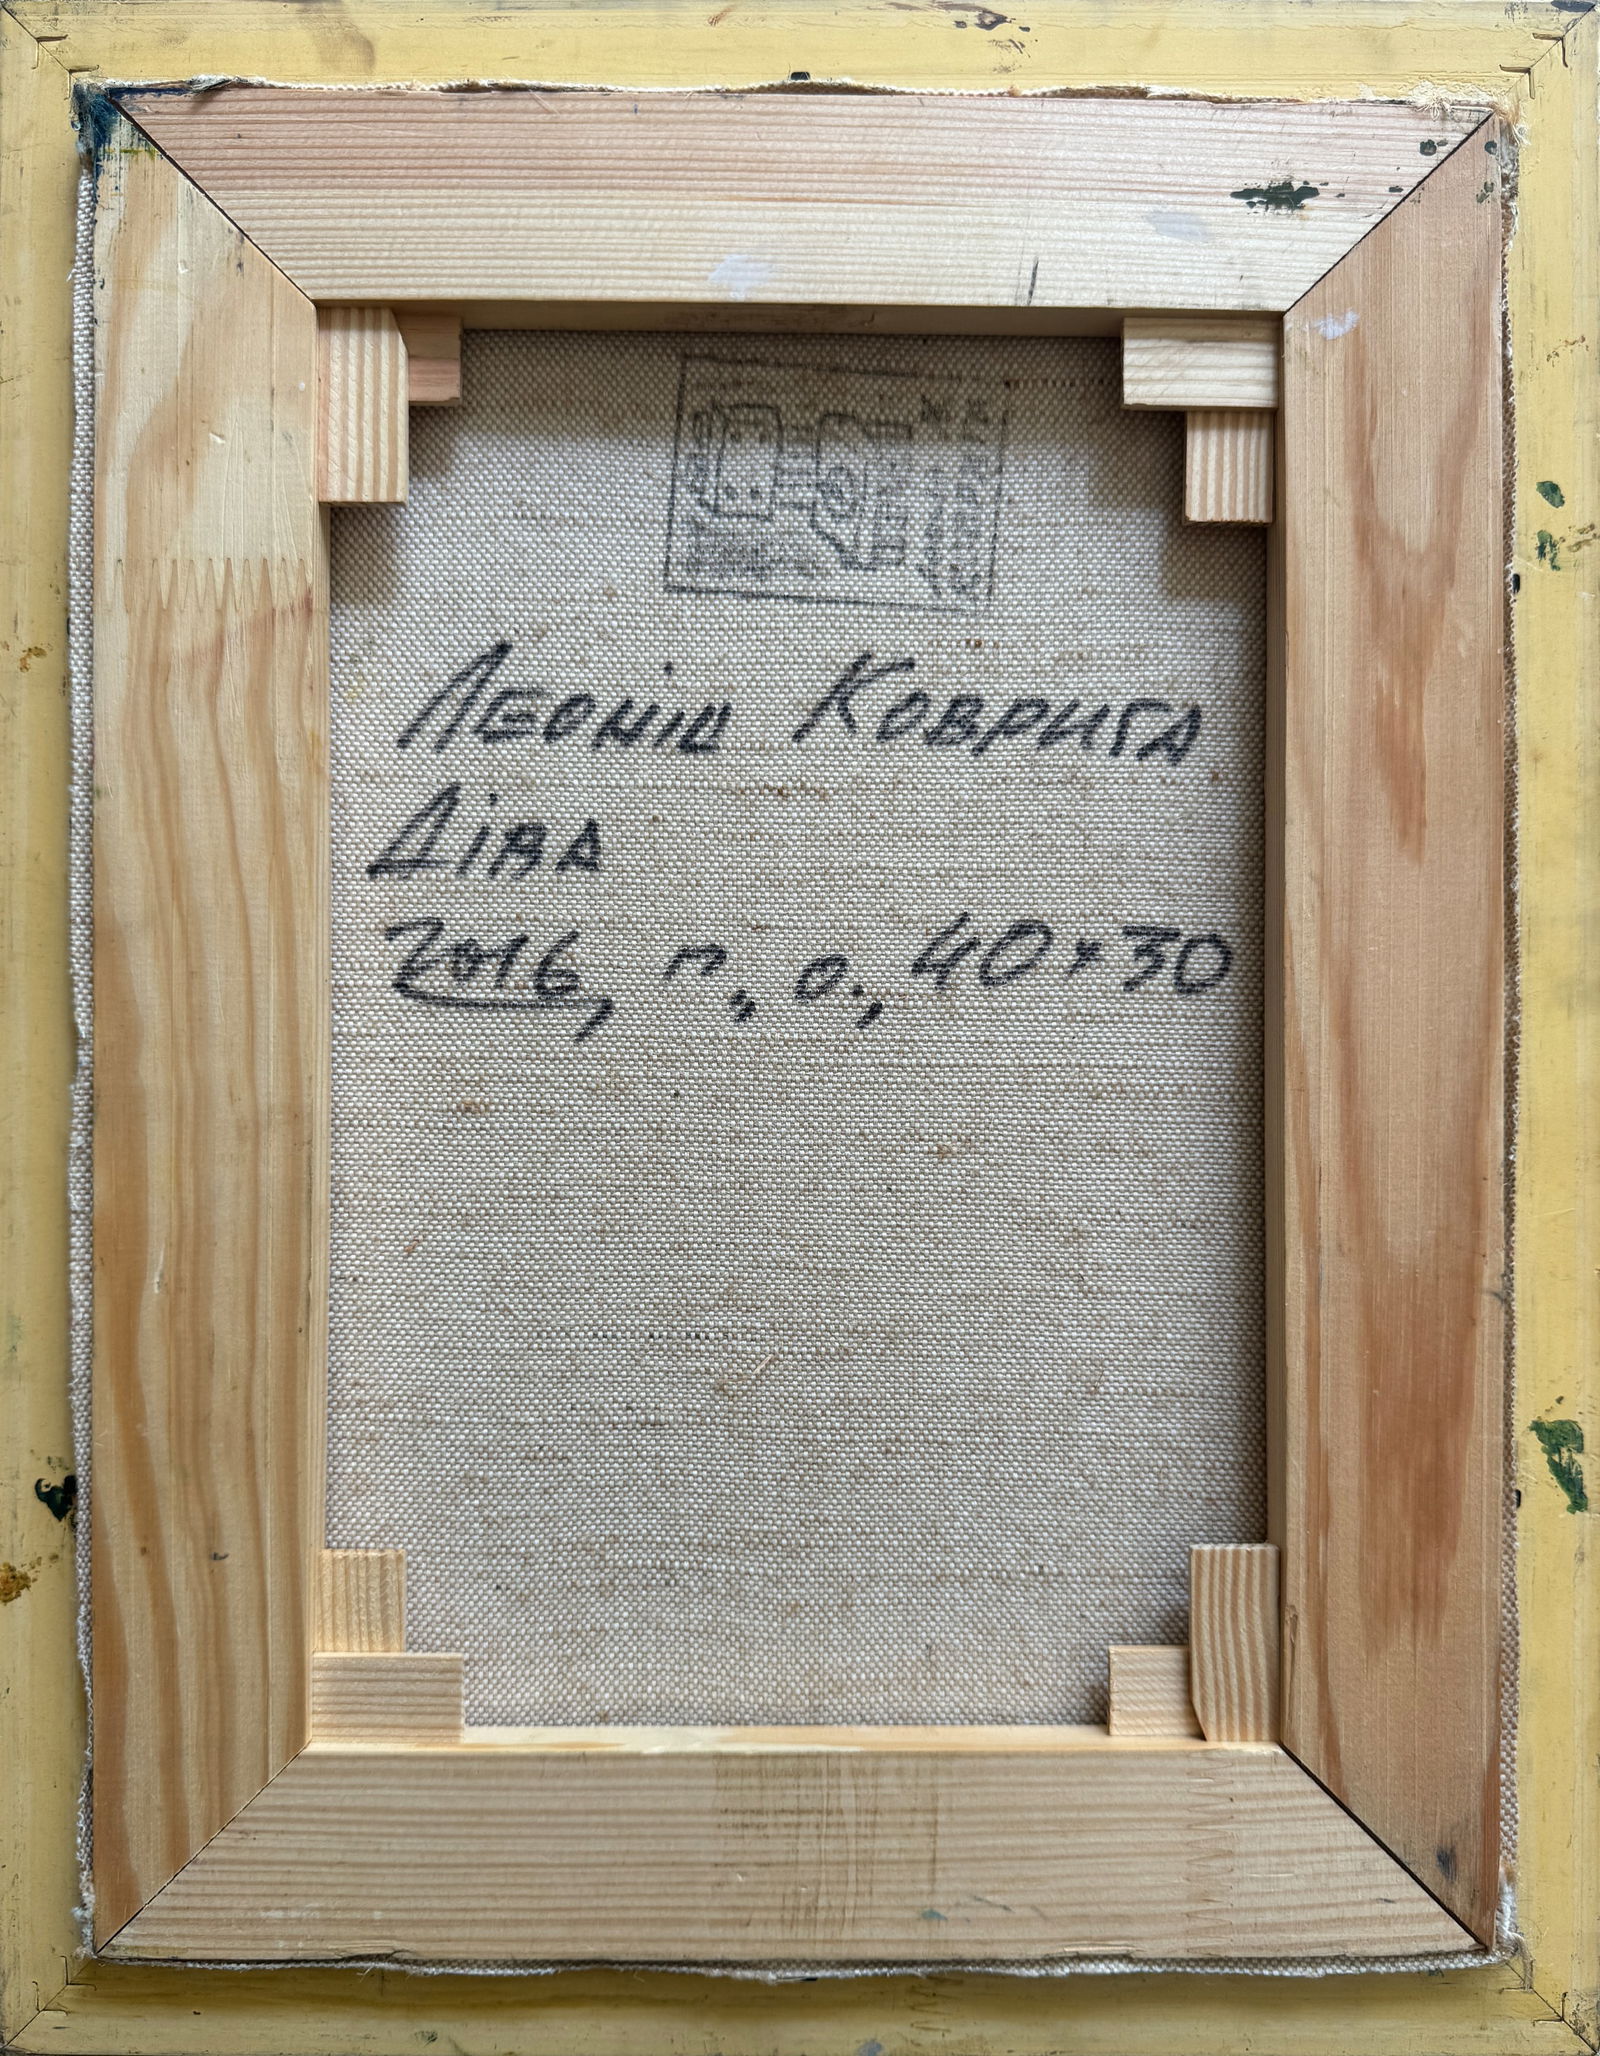 Леонід Коврига
Діва
2016, п., о., 40×30